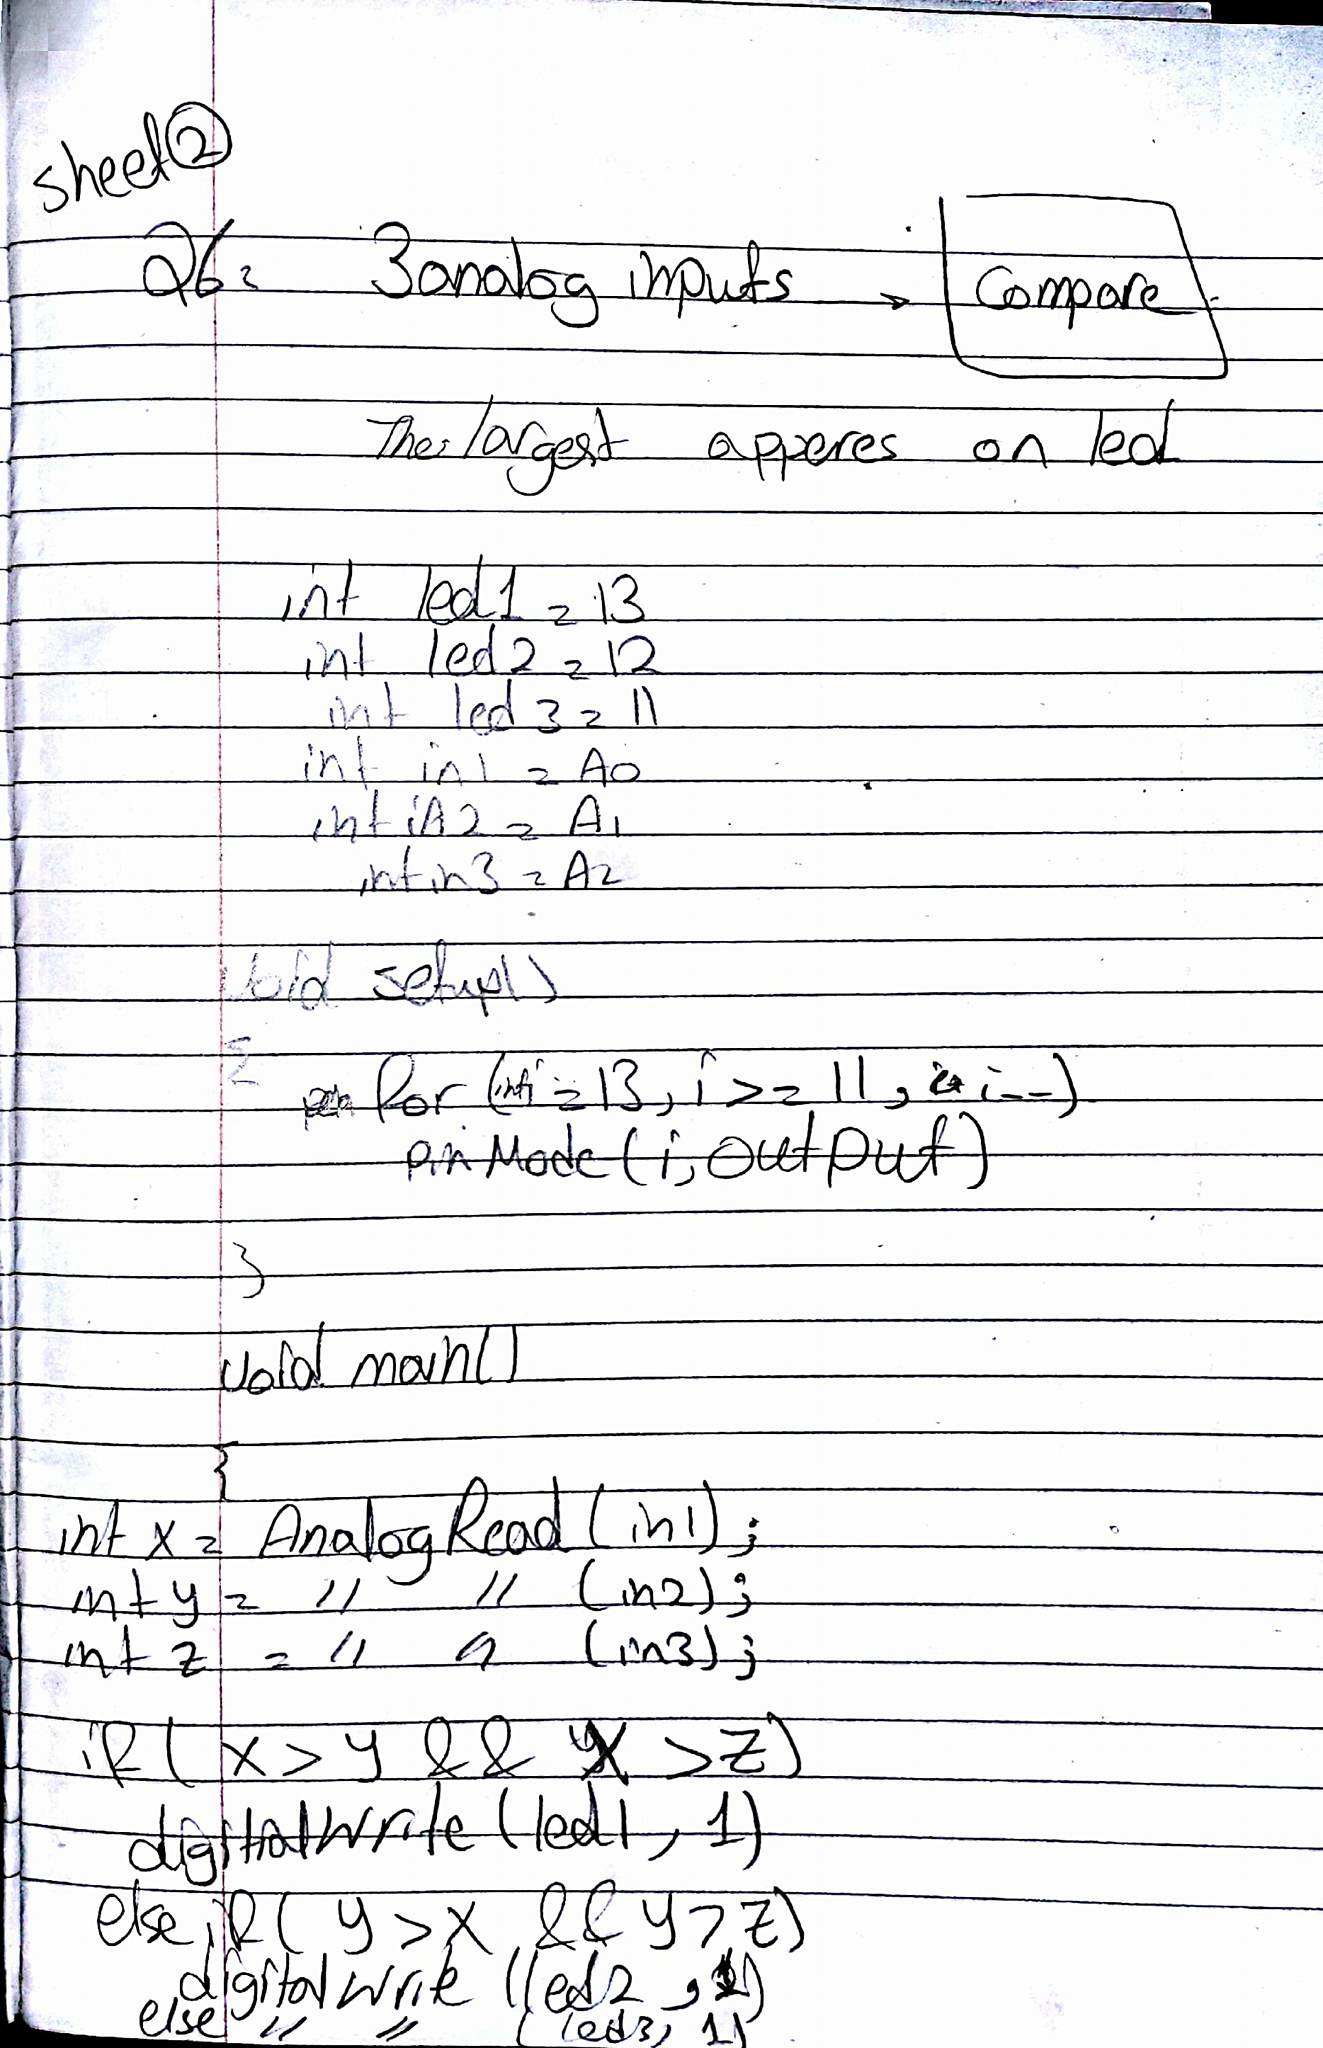 sheet ②
Q6: 3 analog inputs → Compare
The largest apperes on led
int led1 = 13
int led2 = 12
int led3 = 11
int in1 = A0
int in2 = A1
int in3 = A2
void setup()
{
for (int i = 13, i >= 11, i--)
pinMode (i, output)
}
void main()
{
int x = AnalogRead (in1);
int y = " " (in2);
int z = " " (in3);
if ( x > y && x > z)
digitalwrite (led1, 1)
else if ( y > x && y > z)
digitalwrite (led2, 1)
else " " (led3, 1)